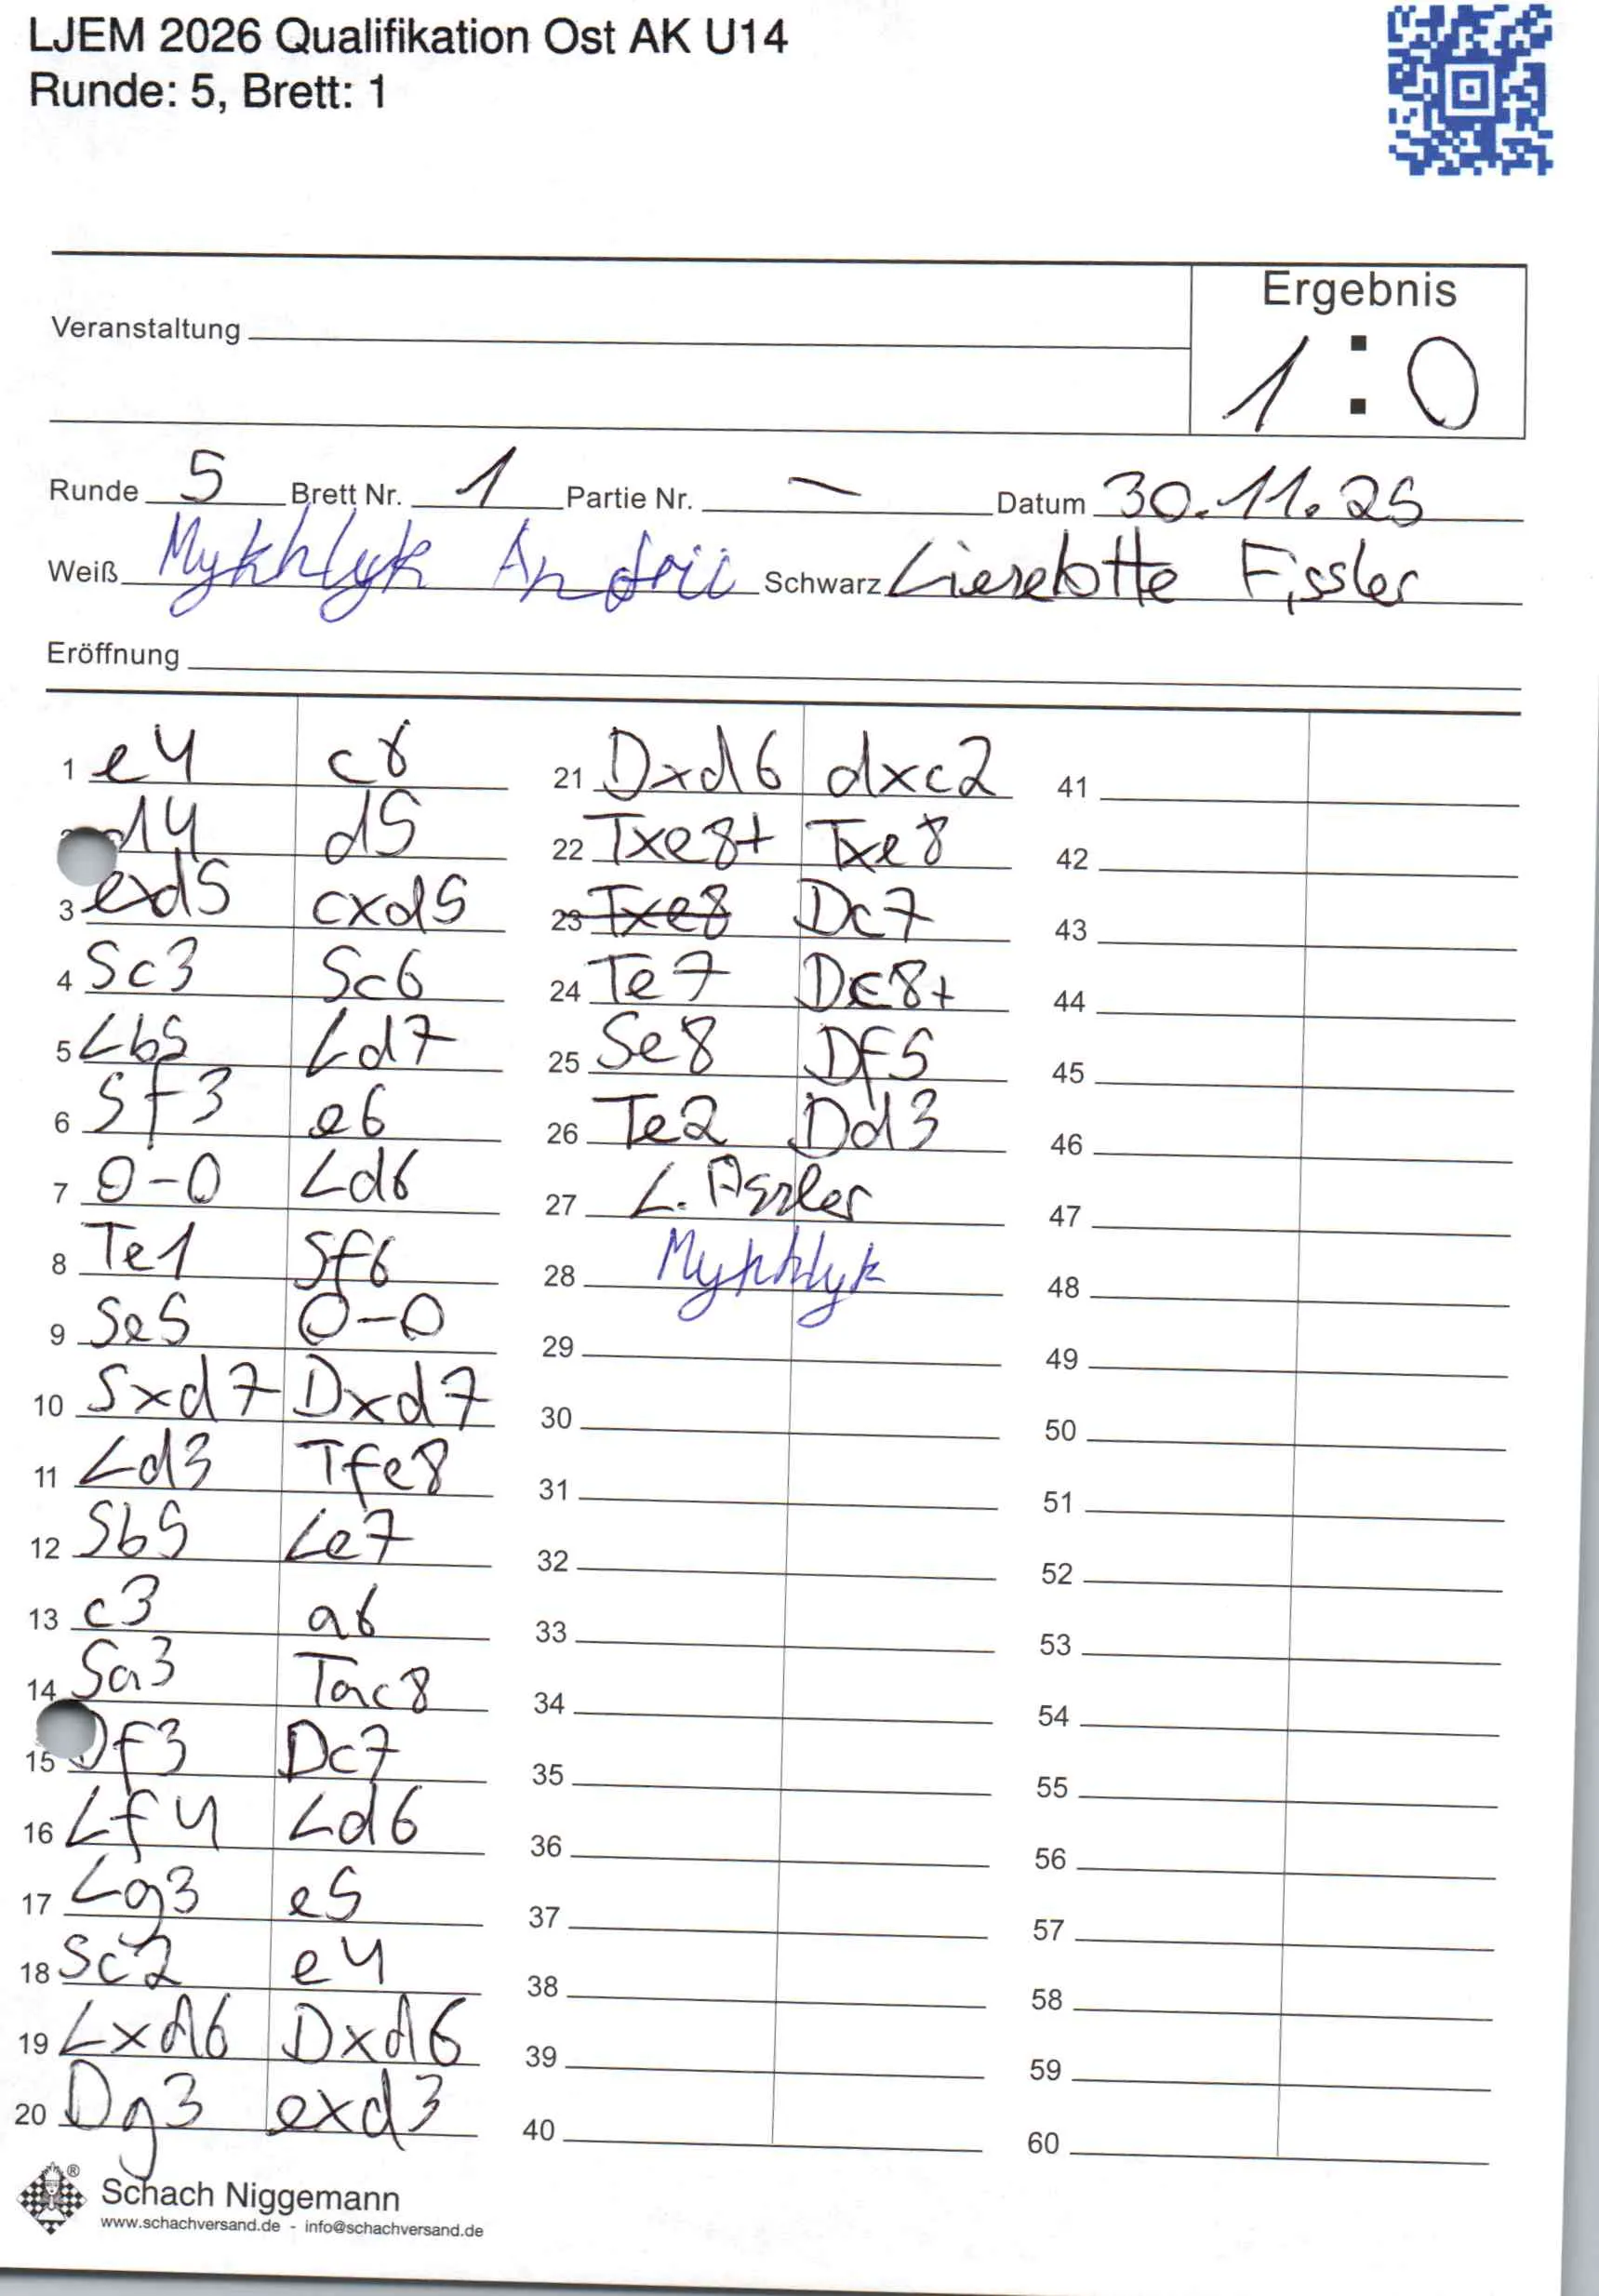 LJEM 2026 Qualifikation Ost AK U14
Runde: 5, Brett: 1
Ergebnis
Veranstaltung
1 : 0
Runde 5 Brett Nr. 1 Partie Nr. — Datum 30.11.25
Weiß Mykhlyk Andrii Schwarz Lieselotte Fissler
Eröffnung
1 e4 c6
d4 d5
3 exd5 cxd5
4 Sc3 Sc6
5 Lb5 Ld7
6 Sf3 e6
7 0-0 Ld6
8 Te1 Sf6
9 Se5 0-0
10 Sxd7 Dxd7
11 Ld3 Tfe8
12 Sb5 Le7
13 c3 a6
14 Sa3 Tac8
15 Df3 Dc7
16 Lf4 Ld6
17 Lg3 e5
18 Sc2 e4
19 Lxd6 Dxd6
20 Dg3 exd3
21 Dxd6 dxc2
22 Txe8+ Txe8
23 Txe8 Dc7
24 Te7 Dc8+
25 Se8 Df5
26 Te2 Dd3
27 L. Fissler
28 Mykhlyk
29
30
31
32
33
34
35
36
37
38
39
40
41
42
43
44
45
46
47
48
49
50
51
52
53
54
55
56
57
58
59
60
Schach Niggemann
www.schachversand.de - info@schachversand.de